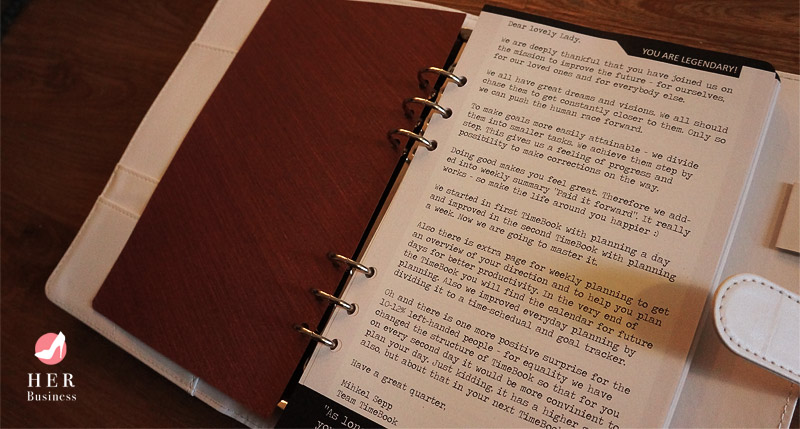 YOU ARE LEGENDARY!
Dear lovely Lady,
We are deeply thankful that you have joined us on
the mission to improve the future - for ourselves,
for our loved ones and for everybody else.
We all have great dreams and visions. We all should
chase them to get constantly closer to them. Only so
we can push the human race forward.
To make goals more easily attainable - we divide
them into smaller tasks. We achieve them step by
step. This gives us a feeling of progress and
possibility to make corrections on the way.
Doing good makes you feel great. Therefore we add-
ed into weekly summary "Paid it forward". It really
works - so make the life around you happier :)
We started in first TimeBook with planning a day
and improved in the second TimeBook with planning
a week. Now we are going to master it.
Also there is extra page for weekly planning to get
an overview of your direction and to help you plan
days for better productivity. In the very end of
the TimeBook you will find the calendar for future
planning. Also we improved everyday planning by
dividing it to a time-schedual and goal tracker.
Oh and there is one more positive surprise for the
10-12% left-handed people - for equality we have
changed the structure of TimeBook so that for you
on every second day it would be more convinient to
plan your day. Just kidding, it has a higher
also, but about that in your next TimeBook
Have a great quarter,
Mihkel Sepp
Team TimeBook
"As lon
HER
Business